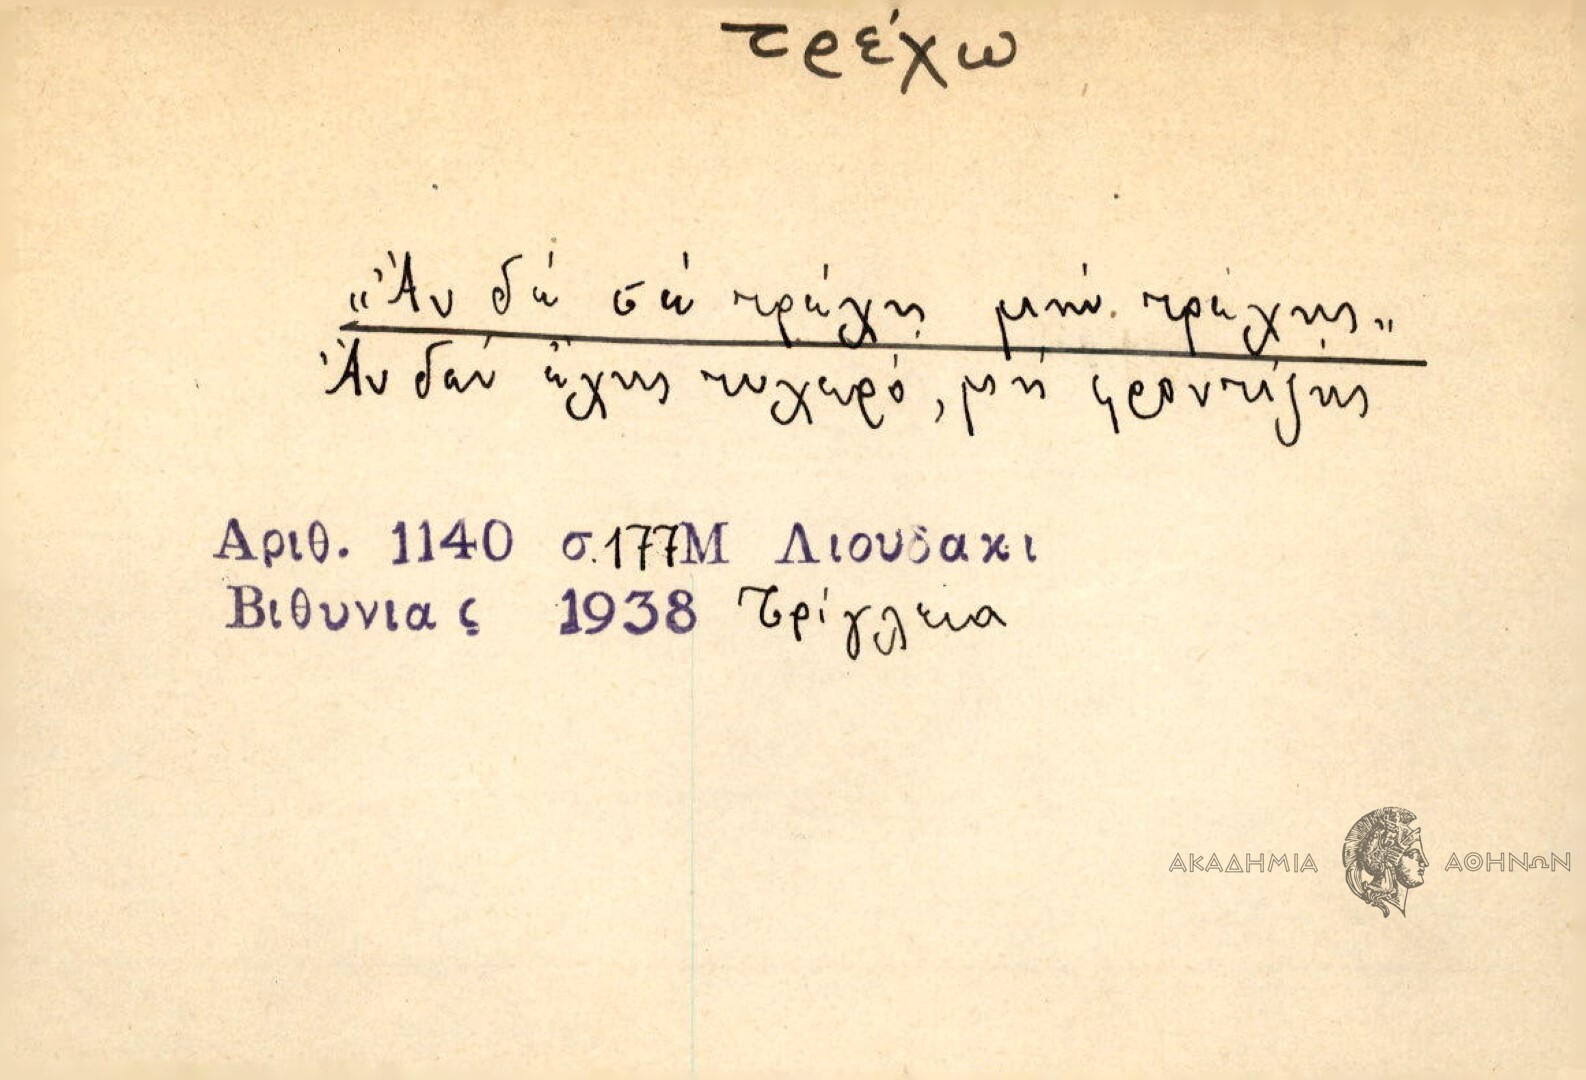 τρέχω
„Ἂν δέ σέ τρέχῃ μήν τρέχῃς„
Ἂν δέν ἔχῃς τυχερό, μή φροντίζῃς
Αριθ. 1140 σ.177 Μ Λιουδακι
Βιθυνιας 1938 Τρίγλεια
ΑΚΑΔΗΜΙΑ ΑΘΗΝΩΝ